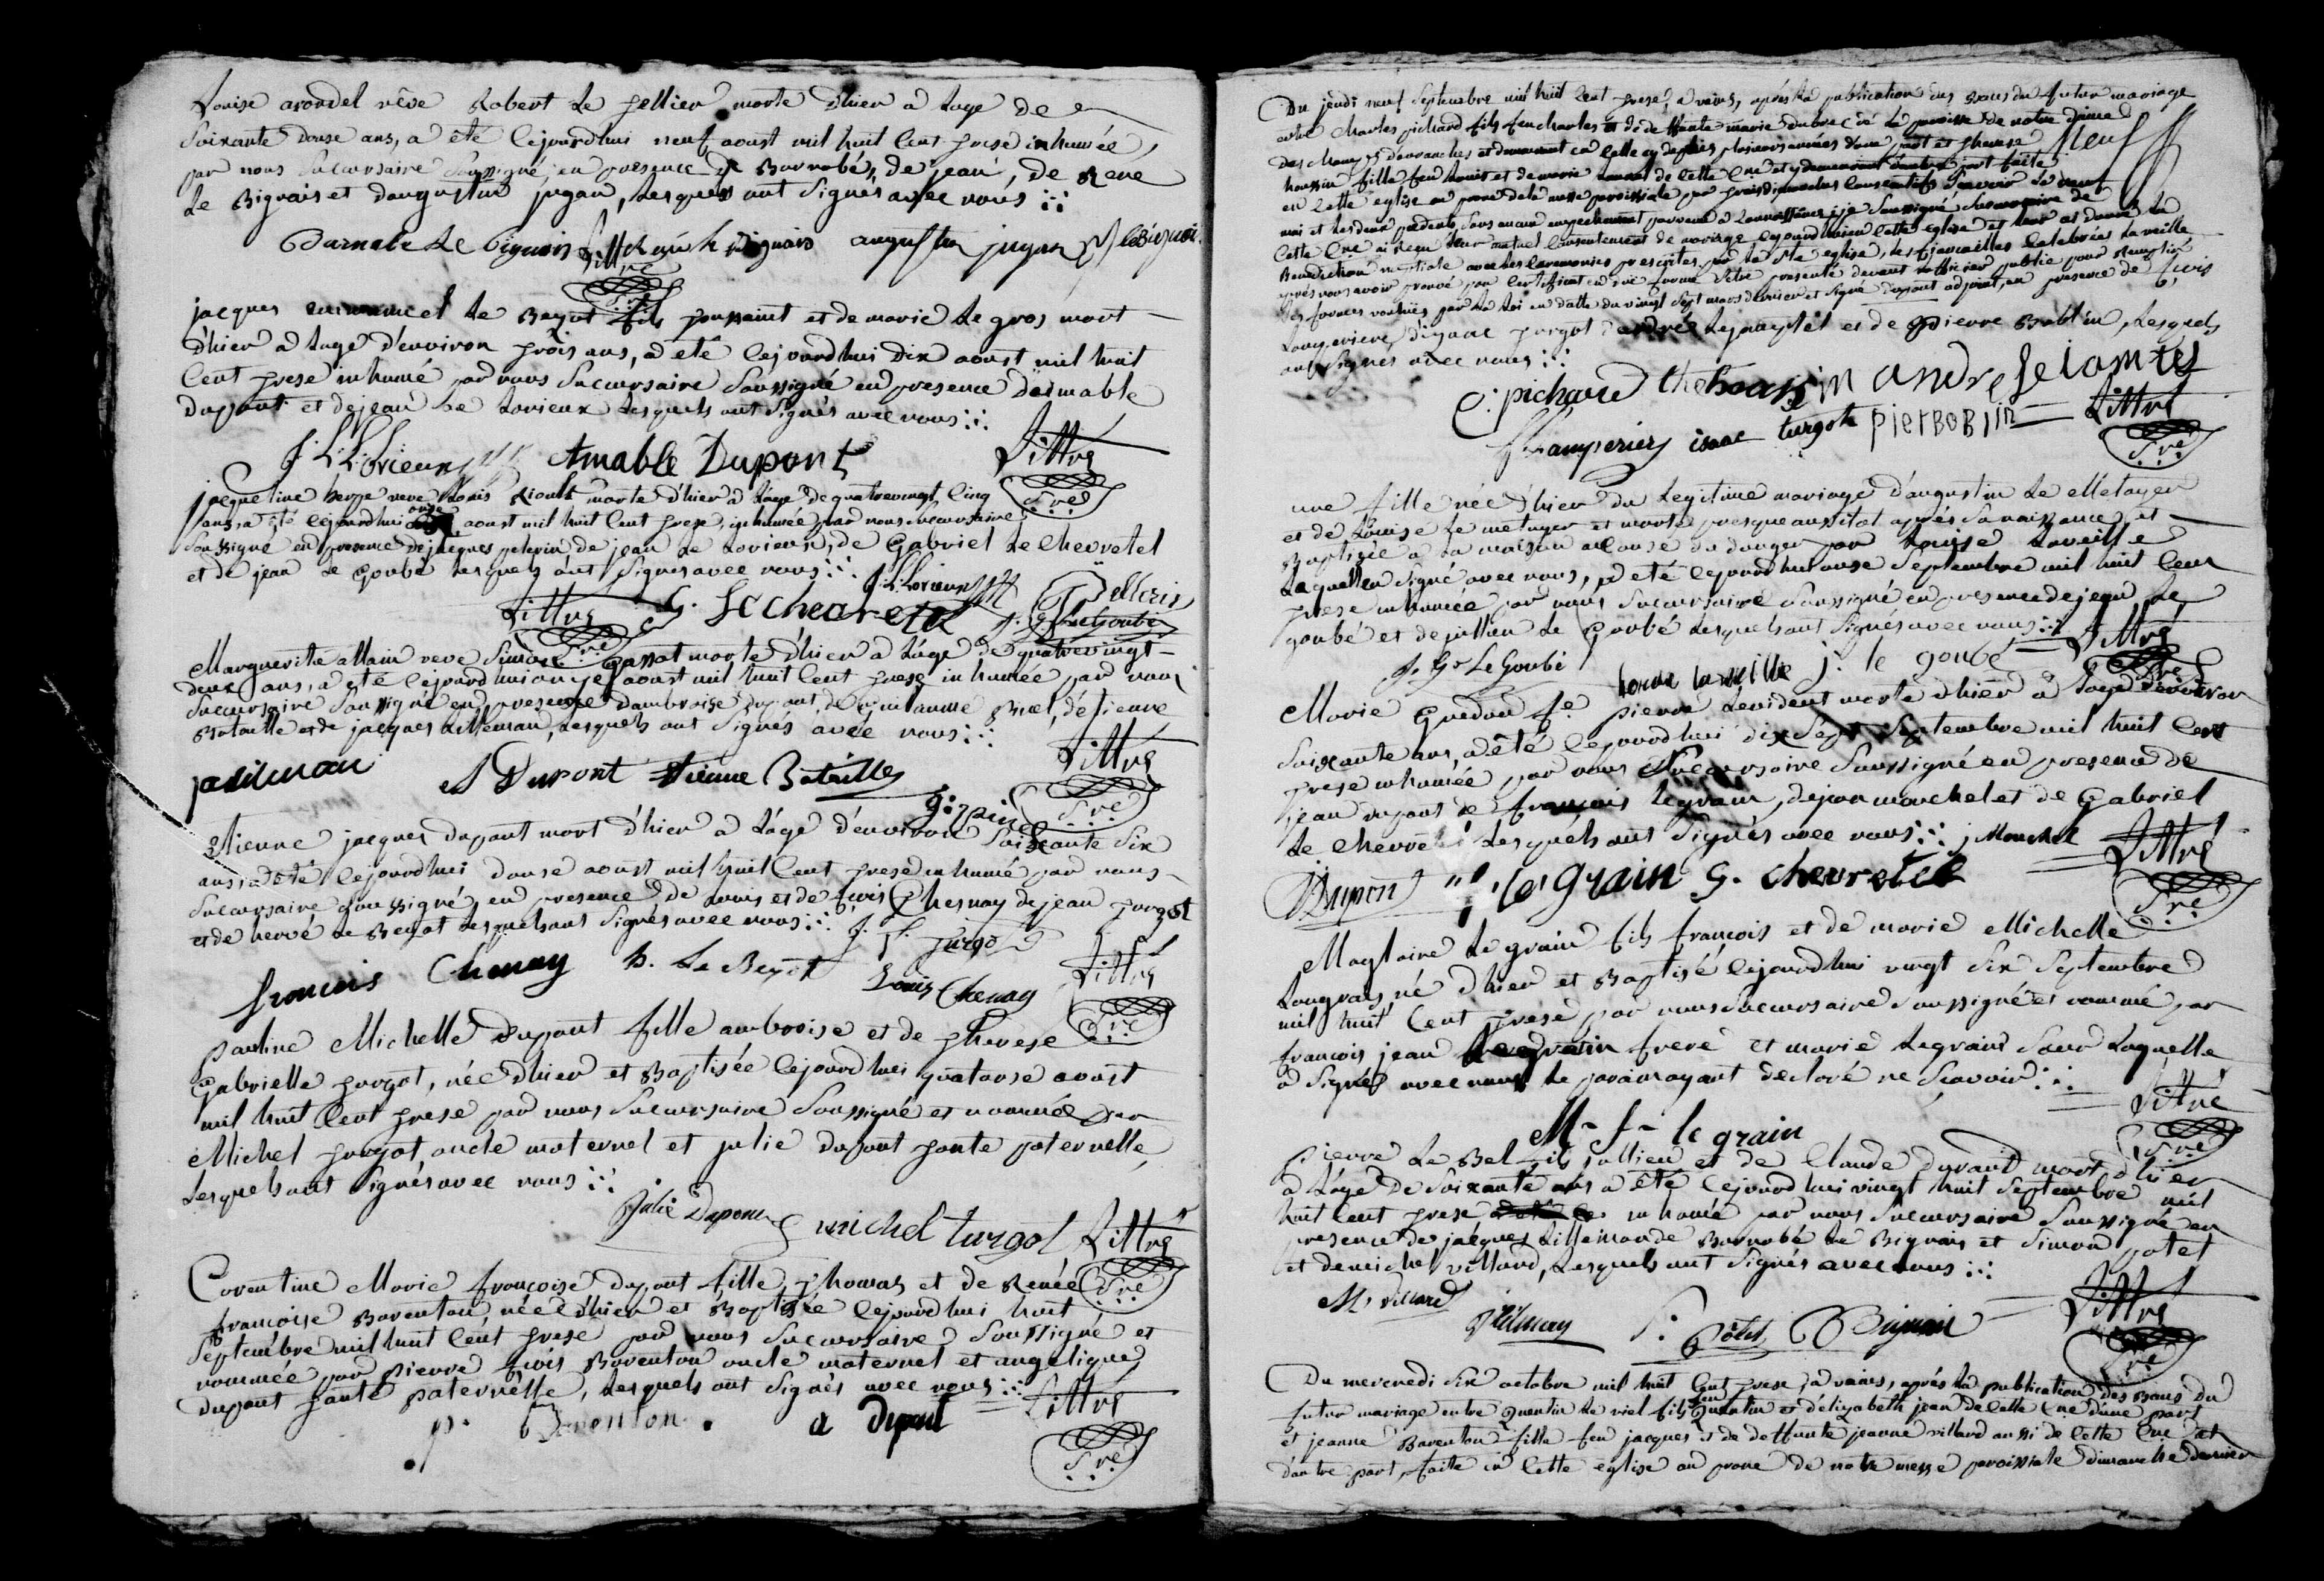 Louise arondel veve Robert Le pellier morte d'hier a l'age de
Soixante douse ans, a été cejourdhui neuf aoust mil huit Cent trese inhumée
par nous Sucursaire Soussigné, en presence de Barnabé, de jean, de René
Le Bignais et d'augustin jugan, Lesquels ont Signés avec nous
Barnabé Le bignais Littré augustin jugan
Sre
jacques emmanuel Le Beyot fils toussaint et de marie Le gros mort
d'hier a l'age d'environ trois ans, a été cejourdhui Dix aoust mil huit
Cent trese inhumé par nous Sucursaire Soussigné en presence d'aimable
dupont et de jean Le Lorieux Lesquels ont Signés avec nous
J. L. Lorieux Amable Dupont Littré
Sre
jacqueline veve Louis Rioult morte d'hier a l'age de quatrevingt Cinq
ans, a été cejourdhui onze aoust mil huit Cent trese, inhumée par nous Sucursaire
Soussigné en presence de jacques pelerin, de jean Le Lorieux, de Gabriel Le Chevretel
et de jean Le Goubé Lesquels ont Signés avec nous J. L. Lorieux
Littré G. Le Chevretel J. G. Le Goubé
Sre
Marguerite allain veve Simon morte d'hier a l'age de quatrevingt
deux ans, a été cejourdhui onze aoust mil huit Cent trese inhumée par nous
Sucursaire Soussigné en presence d'ambroise dupont, de guillaume, d'étienne
Bataille et de jacques Lilleman, Lesquels ont Signés avec nous
A Dupont Etienne Bataille Littré
Sre
Etienne jacques dupont mort d'hier a l'age d'environ Soixante Six
ans, a été cejourdhui douse aoust mil huit Cent trese inhumé par nous
Sucursaire Soussigné, en presence de Louis et de frcois Chesnay de jean turgot
et de hervé Le Beyot Lesquels ont Signés avec nous J. turgot
francois Chenay h. Le Beyot Louis Chenay Littré
Sre
pauline Michelle dupont fille ambroise et de therese
Gabrielle turgot, née d'hier et Baptisée cejourdhui quatorse aoust
mil huit Cent trese par nous Sucursaire Soussigné et nommée par
Michel turgot, oncle maternel et julie dupont tante paternelle,
Lesquels ont Signés avec nous
Julie Dupont michel turgot Littré
Sre
Corentine Marie francoise dupont fille thomas et de Renée
francoise Baventon née d'hier et Baptisée cejourdhui huit
Septembre mil huit Cent trese par nous Sucursaire Soussigné et
nommée par pierre frcois Baventon oncle maternel et angelique
dupont tante paternelle, Lesquels ont Signés avec nous
p. Baventon. a dupont Littré
Sre
Du jeudi neuf Septembre mil huit Cent trese, a vains, après La publication des Bans du futur mariage
entre Charles pichard fils feu charles et de deffunte marie dubrec de La paroisse de notre dame
des Champs d'avranches et demeurant en Cette cy depuis plusieurs années d'une part et therese
houssin fille feu Louis et de marie de Cette Cne et y demeurant d'autre part faite
en Cette eglise au prone de La messe paroissiale par trois dimanches Consecutifs Scavoir Le neuf
mai et Les deux Sans aucun empechement parvenu a Connoissance, je Soussigné Sucursaire de
Cette Cne ai reçu Leur mutuel Consentement de mariage cejourdhui en Cette eglise et Leur ai donné La
Benediction nuptiale avec Les Ceremonies prescrites par La Ste eglise, Les fiancailles Celebrées La veille
après nous avoir prouvé par Certificat en due forme S'etre presenté devant L'officier public pour Remplir
Les formes voulues par La Loi en datte du vingt Sept mars dernier et Signé dupont adjoint, en presence de frcois
Lamperiere, d'isaac turgot d'andré et de pierre Boblin, Lesquels
ont Signés avec nous
C. pichard the houssin andre
f Lamperiere isaac turgot pier BOBlin Littré
Sre
une fille née d'hier du Legitime mariage d'augustin Le Metayer
et de Louise Le metayer et morte presque aussitot après Sa naissance, et
Baptisée a La maison a Cause du danger par Louise Laveille
Laquelle a Signé avec nous, a été cejourdhui onse Septembre mil huit Cent
trese inhumée par nous Sucursaire Soussigné en presence de jean Le
goubé et de jullien Le Goubé Lesquels ont Signés avec nous
J. G. Le Goubé Louise Laveille j. le goubé Littré
Sre
Marie Guedon fe pierre Levident morte d'hier a l'age d'environ
Soixante ans, a été cejourdhui dix Sept Septembre mil huit Cent
trese inhumée par nous Sucursaire Soussigné en presence de
jean dupont de francois Legrain, de jean mouchel et de Gabriel
Le Chevretel Lesquels ont Signés avec nous j Mouchel Littré
Dupont f. le grain G. Chevretel Sre
Magloire Le grain fils francois et de marie Michelle
Longrais, né d'hier et Baptisé cejourdhui vingt Six Septembre
mil huit Cent trese par nous Sucursaire Soussigné et nommé par
francois jean Legrain frere et marie Legrain Soeur Laquelle
a Signé avec nous Le parain ayant declaré ne Scavoir
M f le grain Littré
Sre
pierre Le Bel fils jullien et de Claude durand mort d'hier
a l'age de Soixante ans a été cejourdhui vingt huit Septembre mil
huit Cent trese inhumé par nous Sucursaire Soussigné en
presence de jacques Lilleman de Barnabé Le Bignais et Simon potel
et de michel villard, Lesquels ont Signés avec nous
M. villard J Lilman S. Potel B Bignais Littré
Sre
Du mercredi Six octobre mil huit Cent trese, a vains, après La publication des Bans du
futur mariage entre Quentin Le viel fils Quentin et d'elizabeth jean de Cette Cne d'une part
et jeanne Baventon fille feu jacques et de deffunte jeanne villard aussi de Cette Cne et
d'autre part, faite en Cette eglise au prone de notre messe paroissiale dimanche dernier